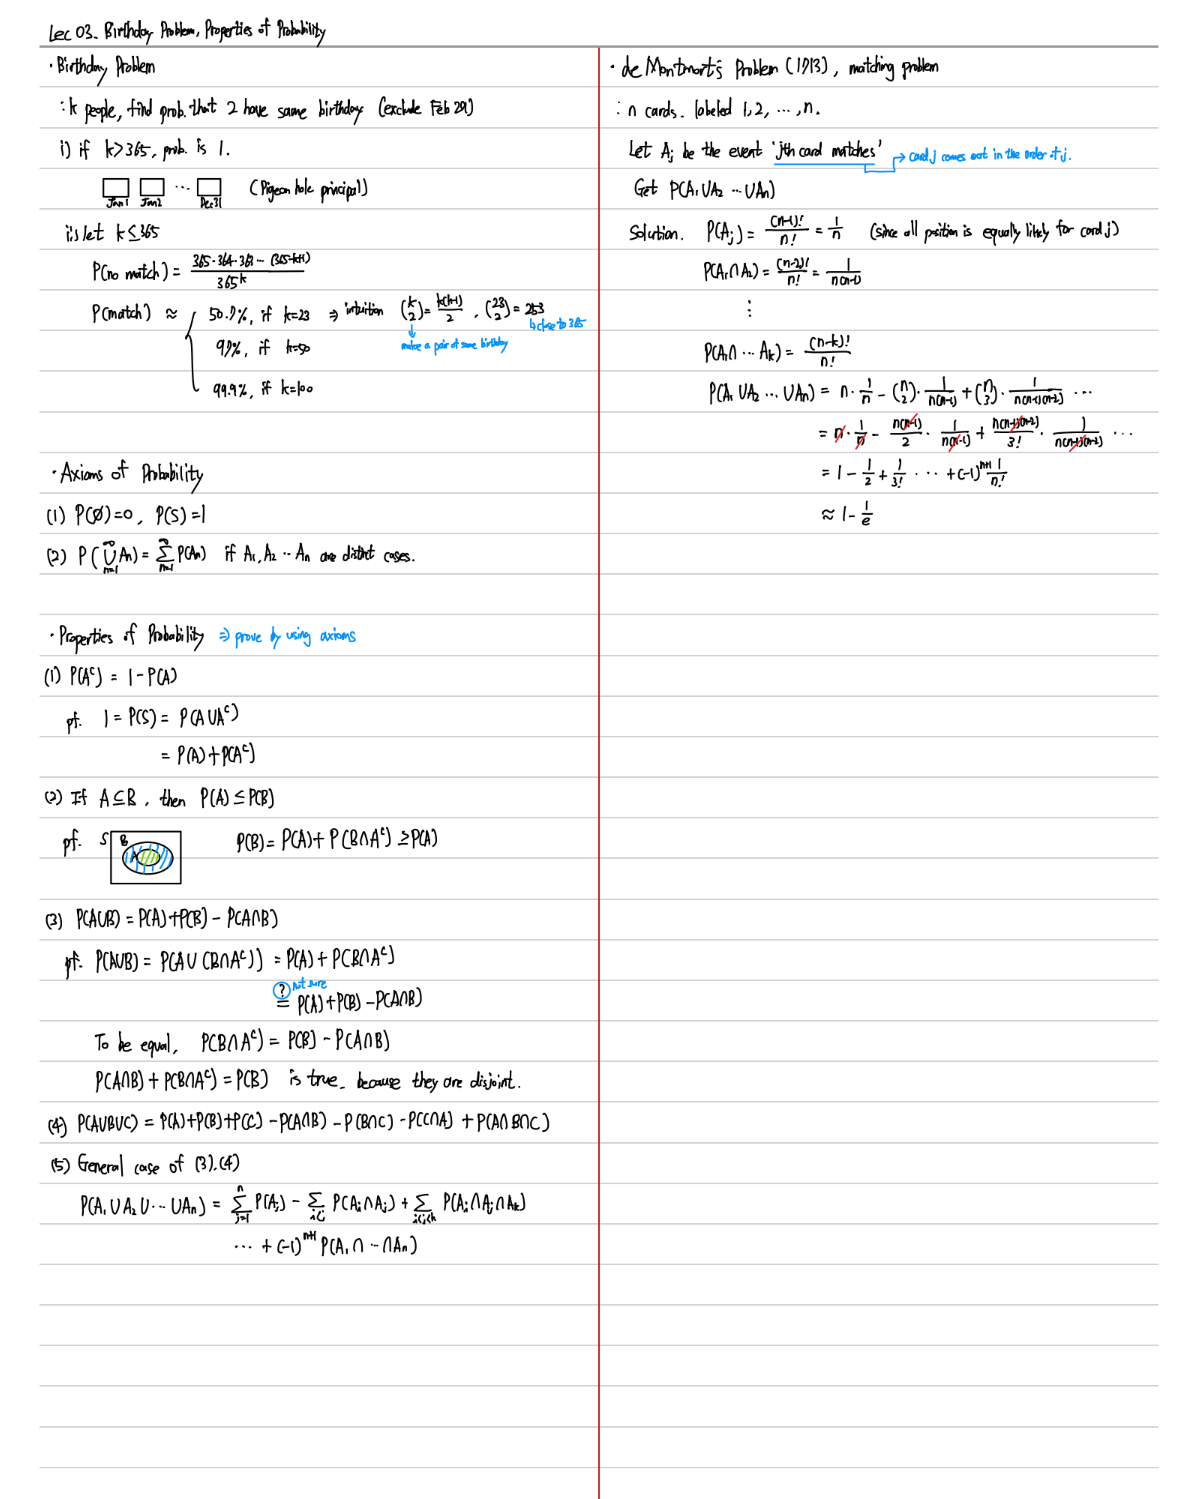 Lec 03. Birthday Problem, Properties of Probability
· Birthday Problem
: k people, find prob. that 2 have same birthday (exclude Feb 29)
i) if k>365, prob. is 1.
Jan1 Jan2 ··· Dec31 (Pigeon hole principal)
ii) let k≤365
P(no match) = 365·364·363 ··· (365-k+1) / 365^k
P(match) ≈ { 50.7%, if k=23 ⇒ intuition (k 2) = k(k-1)/2 , (23 2) = 253
↳ close to 365
make a pair of same birthday
97%, if k=50
99.9%, if k=100
· Axioms of Probability
(1) P(∅)=0, P(S)=1
(2) P(⋃_{n=1}^∞ An) = Σ_{n=1}^∞ P(An) if A₁, A₂ ··· An are distinct cases.
· Properties of Probability ⇒ prove by using axioms
(1) P(A^c) = 1-P(A)
pf. 1 = P(S) = P(A∪A^c)
= P(A)+P(A^c)
(2) If A⊆B, then P(A)≤P(B)
pf. S B A P(B) = P(A)+P(B∩A^c) ≥P(A)
(3) P(A∪B) = P(A)+P(B) - P(A∩B)
pf. P(A∪B) = P(A∪(B∩A^c)) = P(A) + P(B∩A^c)
? not sure
= P(A)+P(B) - P(A∩B)
To be equal, P(B∩A^c) = P(B) - P(A∩B)
P(A∩B) + P(B∩A^c) = P(B) is true. because they are disjoint.
(4) P(A∪B∪C) = P(A)+P(B)+P(C) - P(A∩B) - P(B∩C) - P(C∩A) + P(A∩B∩C)
(5) General case of (3),(4)
P(A₁∪A₂∪ ··· ∪An) = Σ_{j=1}^n P(Aj) - Σ_{i<j} P(Ai∩Aj) + Σ_{i<j<k} P(Ai∩Aj∩Ak)
··· + (-1)^{n+1} P(A₁∩ ··· ∩An)
· de Montmort's Problem (1713), matching problem
: n cards. labeled 1,2, ···, n.
Let Aj be the event 'jth card matches' → card j comes out in the order of j.
Get P(A₁∪A₂ ··· ∪An)
Solution. P(Aj) = (n-1)!/n! = 1/n (since all position is equally likely for card j)
P(A₁∩A₂) = (n-2)!/n! = 1/n(n-1)
⋮
P(A₁∩ ··· Ak) = (n-k)!/n!
P(A₁∪A₂ ··· ∪An) = n·1/n - (n 2)·1/n(n-1) + (n 3)·1/n(n-1)(n-2) ···
= n·1/n - n(n-1)/2 · 1/n(n-1) + n(n-1)(n-2)/3! · 1/n(n-1)(n-2) ···
= 1 - 1/2 + 1/3! ··· + (-1)^{n+1} 1/n!
≈ 1 - 1/e